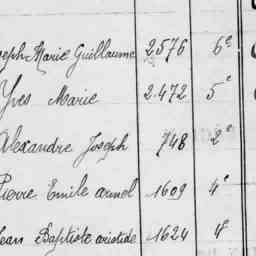 oseph Marie Guillaume 2576 6e
Yves Marie 2472 5e
Alexandre Joseph 748 2e
Pierre Emile armel 1609 4e
Jean Baptiste aristide 1624 4e